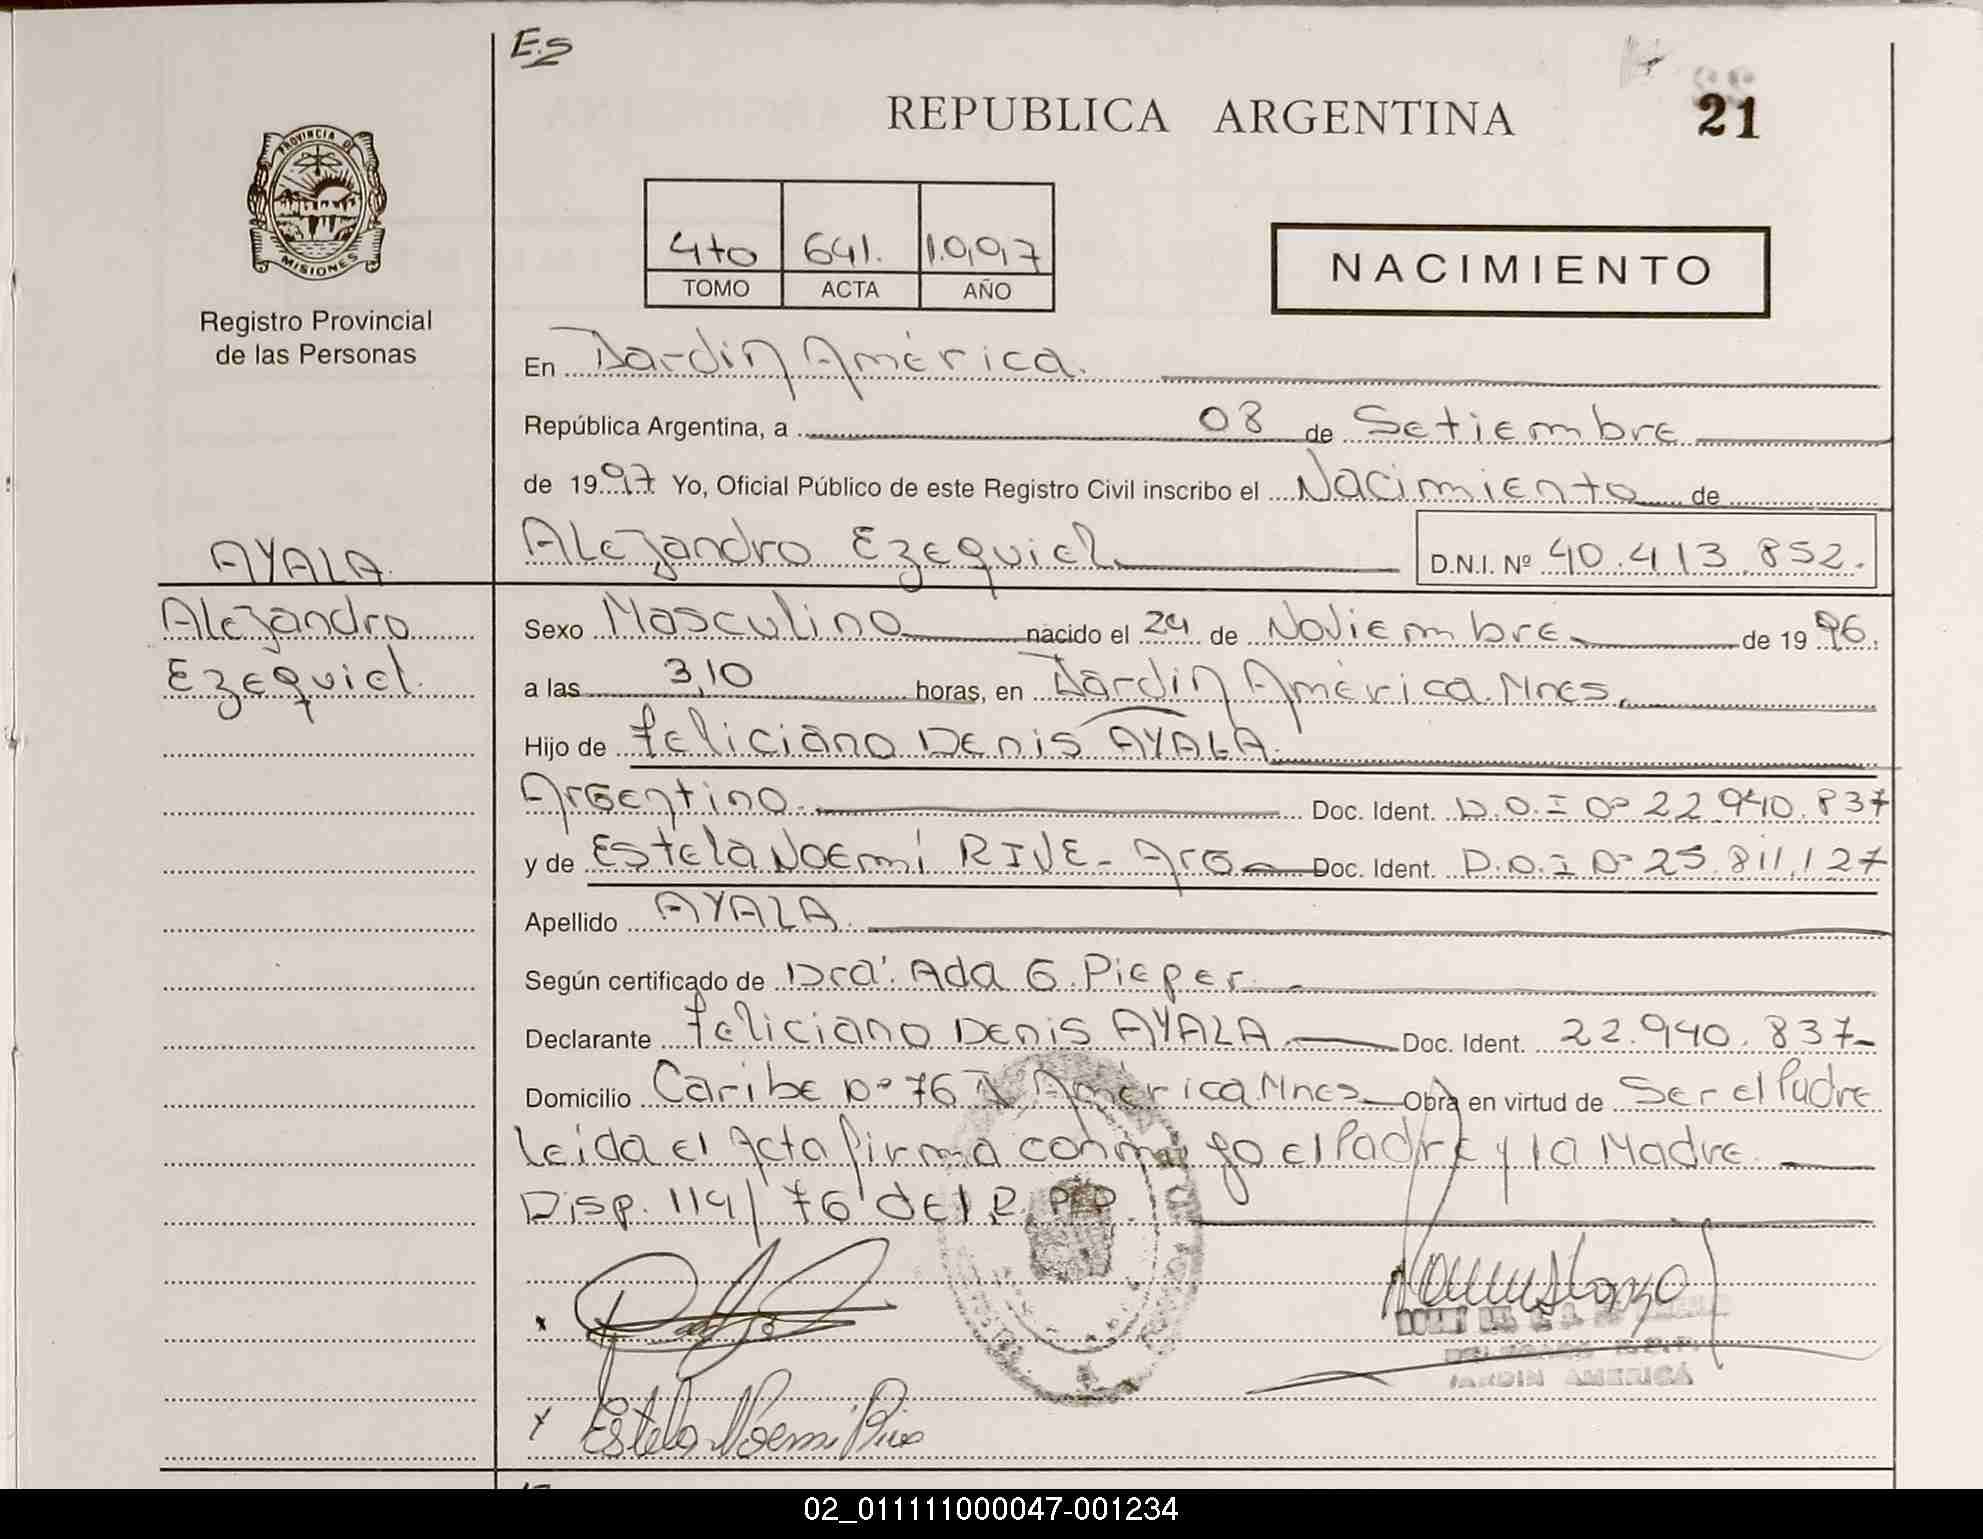 E.S
REPUBLICA ARGENTINA
21
PROVINCIA DE
MISIONES
Registro Provincial
de las Personas
4to 641. 1.9.9.7
TOMO ACTA AÑO
NACIMIENTO
En Jardin América.
República Argentina, a 08 de Setiembre
de 1997 Yo, Oficial Público de este Registro Civil inscribo el Nacimiento de
AYALA. Alejandro Ezequiel D.N.I. Nº 40.413.852.
Alejandro
Ezequiel.
Sexo Masculino nacido el 24 de Noviembre de 1996.
a las 3,10 horas, en Jardin América. Mnes,
Hijo de Feliciano Denis AYALA.
Argentino. Doc. Ident. D.N.I Nº 22.940.837
y de Estela Noemí RIVE - Arg Doc. Ident. D.N.I Nº 25.811.127
Apellido AYALA.
Según certificado de Dra. Ada G. Pieper.
Declarante Feliciano Denis AYALA Doc. Ident. 22.940.837
Domicilio Caribe Nº 76 J América Mnes Obra en virtud de Ser el Padre
leida el Acta firma conmigo el Padre y la Madre.
Disp. 114/76 del R.P.P.
JARDIN AMERICA
Estela Noemi Rive
02_011111000047-001234